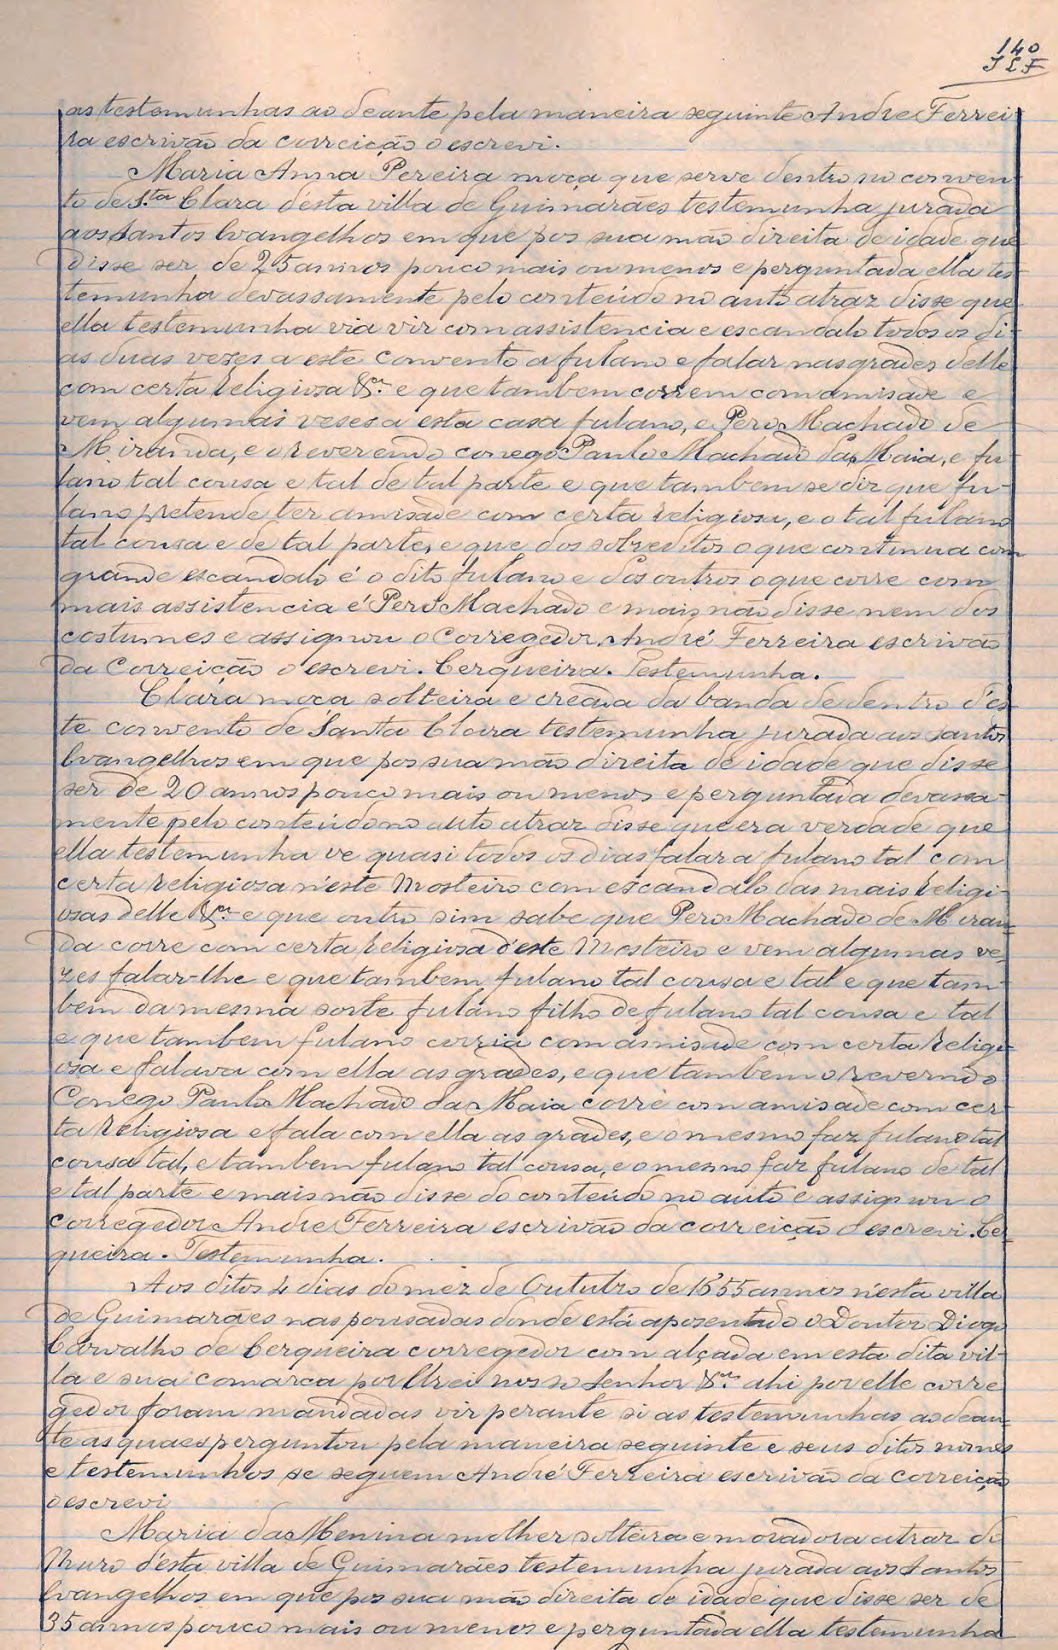 140
J L F
as testemunhas ao deante pela maneira seguinte Andre Ferrei-
ra escrivão da correição o escrevi.
Maria Anna Pereira moça que serve dentro no conven-
to de S.ta Clara d'esta villa de Guimarães testemunha jurada
aos Santos Evangelhos em que pos sua mão direita de idade que
disse ser de 25 annos pouco mais ou menos e perguntada ella tes-
temunha devassamente pelo conteúdo no auto atraz disse que
ella testemunha via vir com assistencia e escandalo todos os di-
as duas vezes a este convento a fulano e falar nas grades delle
com certa religiosa e que tambem correm com amisade e
vem algumas veses a esta casa fulano, e Pero Machado de
Miranda, e o reverendo conego Paulo Machado da Maia, e fu-
lano tal cousa e tal de tal parte e que tambem se diz que fu-
lano pretende ter amisade com certa religiosa, e o tal fulano
tal cousa e de tal parte, e que dos sobreditos o que continua com
grande escandalo é o dito fulano e dos outros o que corre com
mais assistencia é Pero Machado e mais não disse nem dos
costumes e assignou o Corregedor. André Ferreira escrivão
da Correição o escrevi. Cerqueira. Testemunha.
Clara moça solteira e creada da banda de dentro d'es-
te convento de Santa Clara testemunha jurada aos santos
Evangelhos em que pos sua mão direita de idade que disse
ser de 20 annos pouco mais ou menos e perguntada devassa-
mente pelo conteúdo no auto atraz disse que era verdade que
ella testemunha ve quasi todos os dias falar a fulano tal com
certa religiosa n'este Mosteiro com escandalo das mais religi-
osas delle e que outro sim sabe que Pero Machado de Miran-
da corre com certa religiosa d'este Mosteiro e vem algumas ve-
zes falar-lhe e que tambem fulano tal cousa e tal e que tam-
bem da mesma sorte fulano filho de fulano tal cousa e tal
e que tambem fulano corria com amisade com certa religi-
osa e falava com ella as grades, e que tambem o reverendo
Conego Paulo Machado da Maia corre com amisade com cer-
ta religiosa e fala com ella as grades, e o mesmo faz fulano tal
cousa tal, e tambem fulano tal cousa, e o mesmo faz fulano de tal
e tal parte e mais não disse do conteúdo no auto e assignou o
corregedor Andre Ferreira escrivão da correição o escrevi. Cer-
queira. Testemunha.
Aos ditos 4 dias do mez de Outubro de 1655 annos n'esta villa
de Guimarães nas pousadas donde está aposentado o Doutor Diogo
Carvalho de Cerqueira corregedor com alçada em esta dita vil-
la e sua comarca por Elrei nosso Senhor ahi por elle corre-
gedor foram mandadas vir perante si as testemunhas ao dean-
te as quaes perguntou pela maneira seguinte e seus ditos nomes
e testemunhos se seguem André Ferreira escrivão da correição
o escrevi
Maria da Menina molher solteira e moradora atraz do
Muro d'esta villa de Guimarães testemunha jurada aos Santos
Evangelhos em que pos sua mão direita de idade que disse ser de
35 annos pouco mais ou menos e perguntada ella testemunha